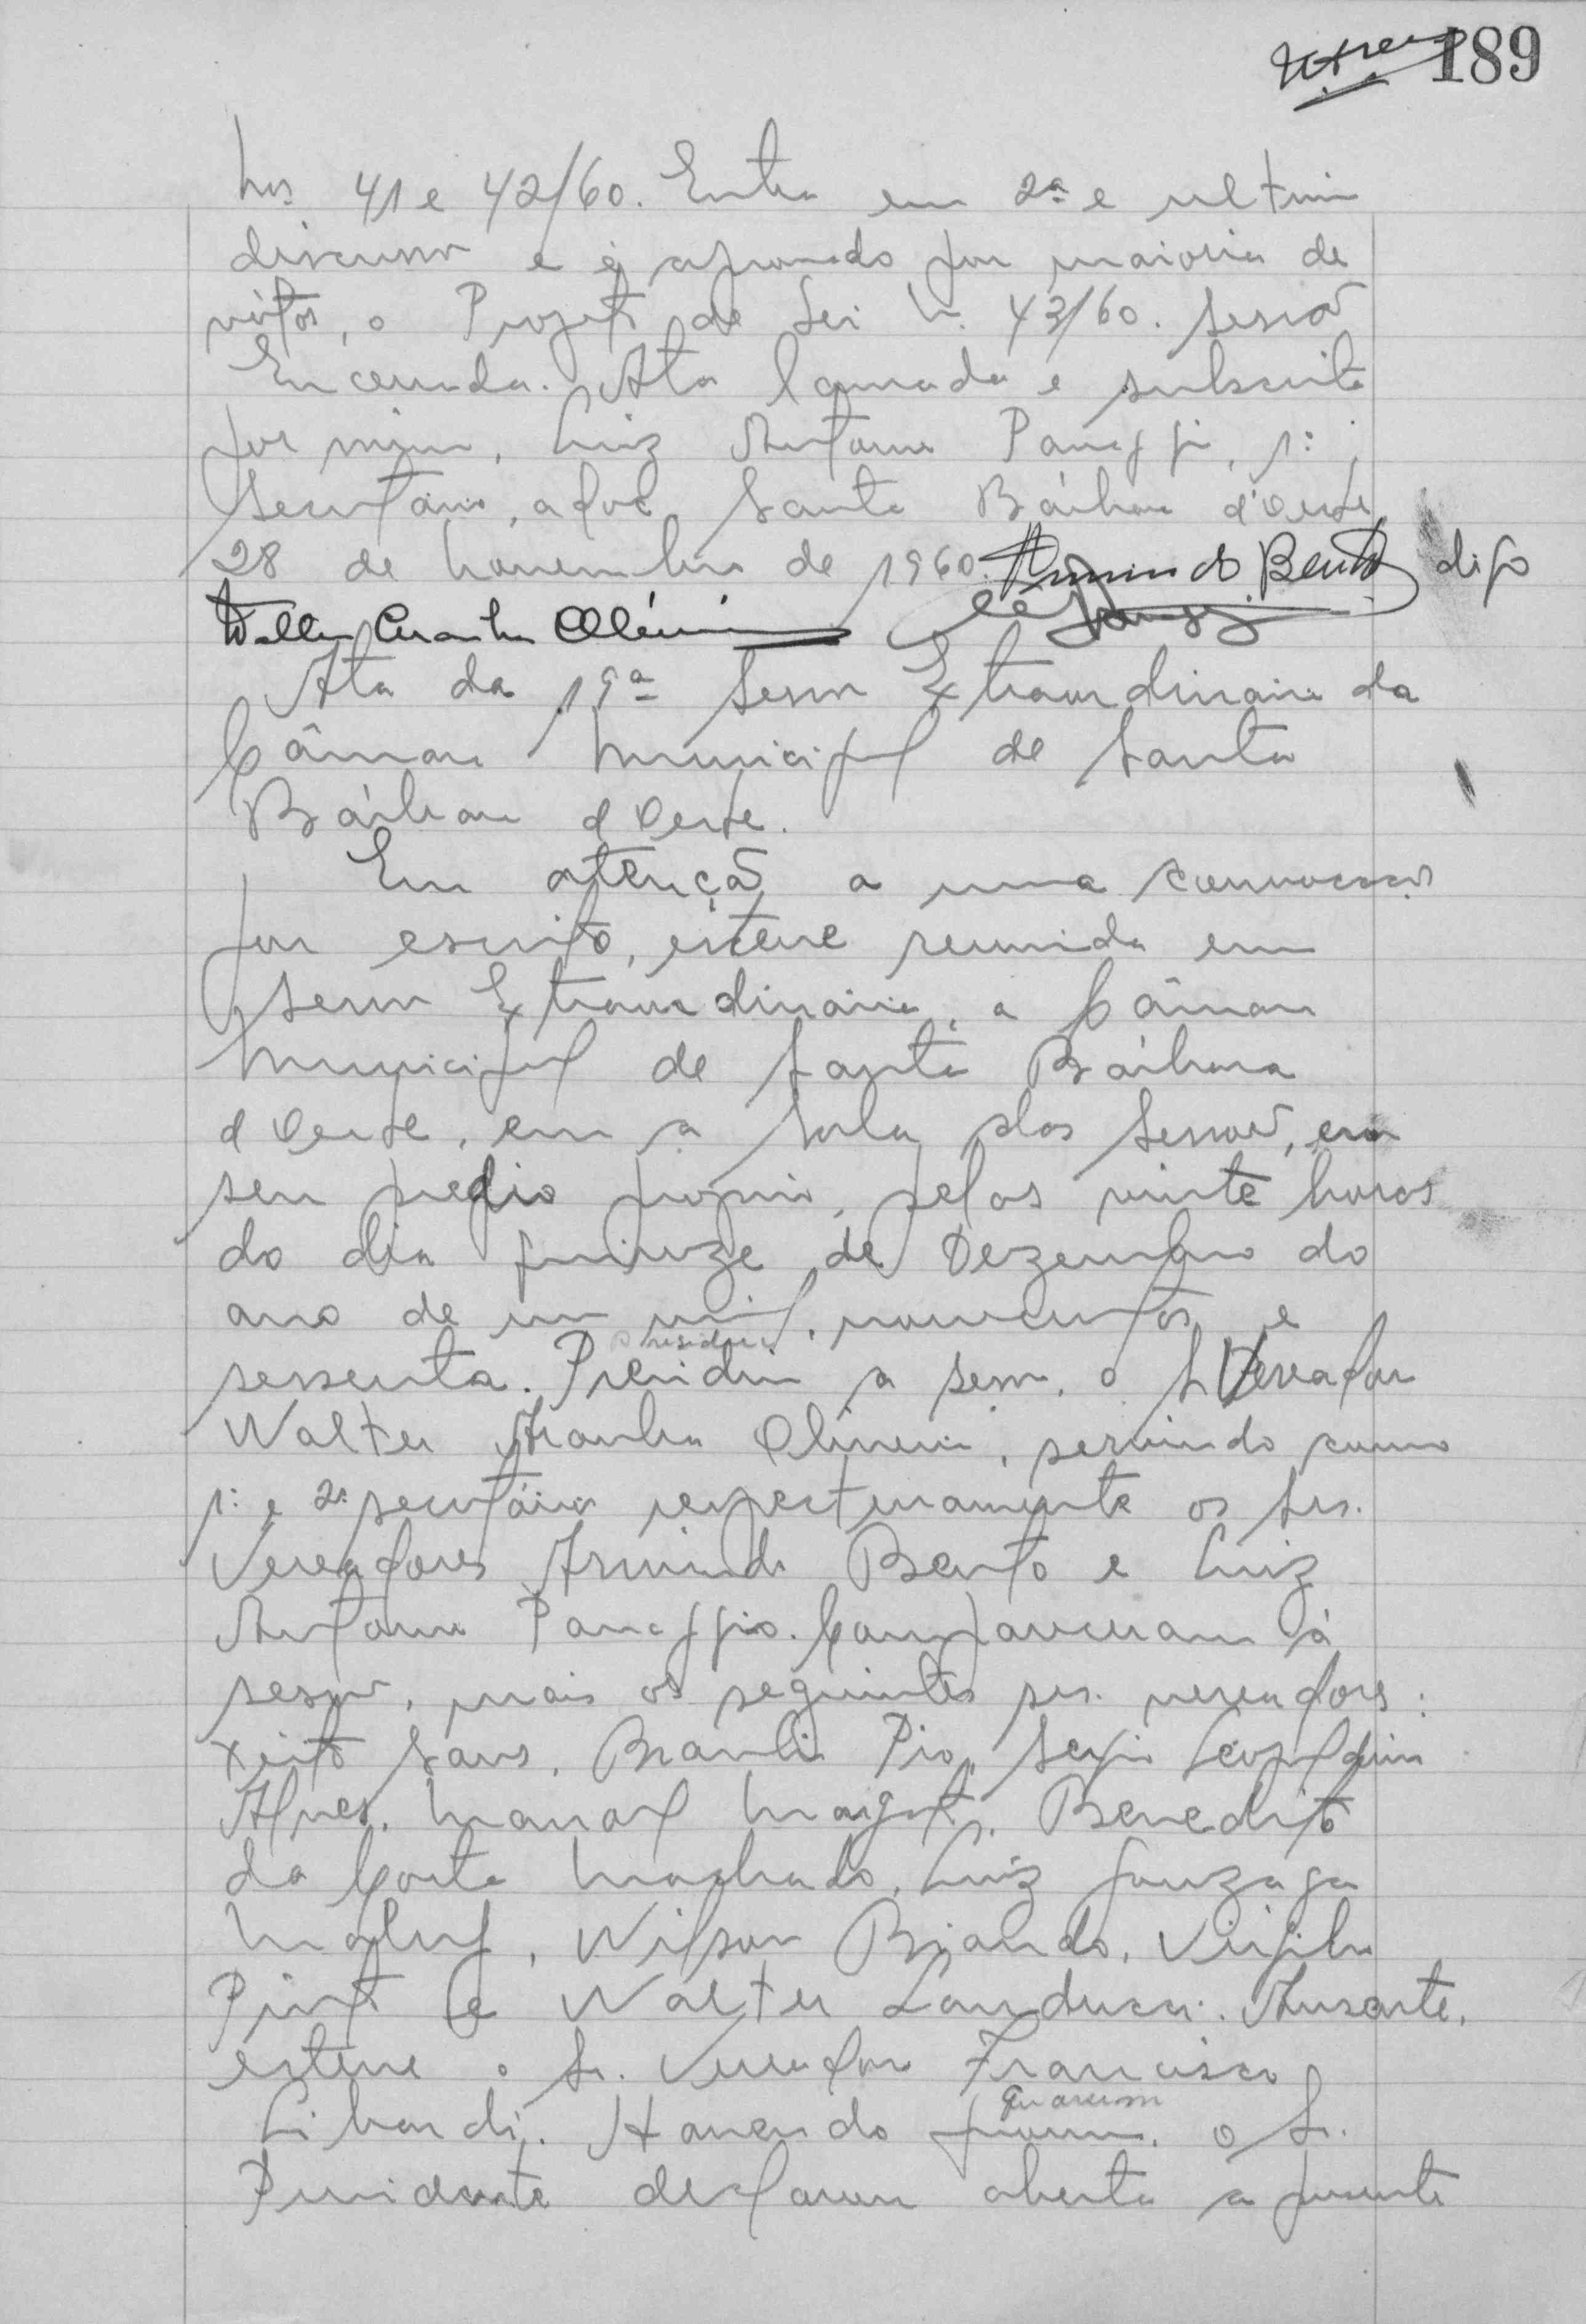 189
Nos 41 e 42/60. Entra em 2ª e ultima
discussão e é aprovado por maioria de
vótos, o Projeto de Lei N. 43/60. Sessão
Encerrada. Ata lavrada e subscrita
por mim, Luiz Antonio Panaggio, 1º
Secretário, adoc Santa Bárbara d'Oeste
28 de Novembro de 1960. Armindo Bento digo
Walter Aranha Oliveira
Ata da 19ª Sessão Extraordinaria da
Câmara Municipal de Santa
Bárbara d Oeste.
Em atenção a uma convocação
por escrito, esteve reunida em
Sessão Extraordinária, a Câmara
Municipal de Santa Bárbara
d Oeste, em a Sala das Sessões, em
seu predio proprio, pelas vinte horas
do dia quinze de Dezembro do
ano de um mil, novecentos e
presidiu
sessenta. Presidiu a sessão, o S Vereador
Walter Aranha Oliveira, servindo como
1º e 2º secretário respectivamente os Srs.
Vereadores Armindo Bento e Luiz
Antonio Panaggio. Compareceram à
sessão, mais os seguintes srs. vereadores:
Xisto Sans, Braulio Pio, Sergio Leopoldino
Alves, Manoel Margato, Benedito
da Costa Machado, Luiz Gonzaga
Maluf, Wilson Briando, Virgilio
Pinto e Walter Landucci. Ausente,
esteve o Sr. Vereador Francisco
quorum
Libardi. Havendo quorum, o Sr.
Presidente declarou aberta a presente